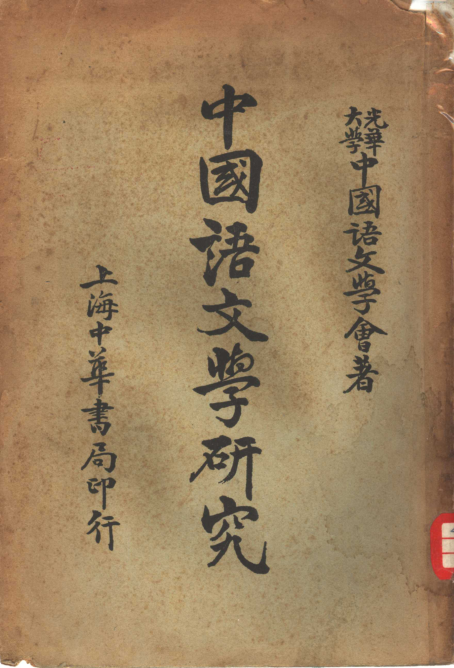 光華大學中國語文學會著
中國語文學研究
上海中華書局印行